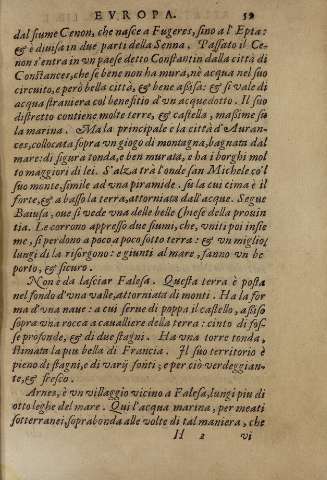 EVROPA. 59
dal fiume Cenon, che nasce a Fugeres, sino a l'Epta:
& è diuisa in due parti della Senna. Passato il Ce-
non s'entra in vn paese detto Constantin dalla città di
Constances, che se bene non ha mura, nè acqua nel suo
circuito, e però bella città, & bene assisa: & si vale di
acqua straniera col benefitio d'vn acquedotto. Il suo
distretto contiene molte terre, & castella, massime su
la marina. Ma la principale e la città d'Auran-
ces, collocata sopra vn giogo di montagna, bagnata dal
mare: di figura tonda, e ben murata, e ha i borghi mol
to maggiori di lei. S'alza trà l'onde san Michele co'l
suo monte, simile ad vna piramide. su la cui cima è il
forte, & a basso la terra, attorniata dall'acque. Segue
Baiusa, oue si vede vna delle belle Chiese della prouin
tia. Le corrono appresso due fiumi, che, vniti poi insie
me, si perdono a poco a poco sotto terra: & vn miglio
lungi di la risorgono: e giunti al mare, fanno vn bel
porto, & sicuro.
Non è da lasciar Falesa. Questa terra è posta
nel fondo d'vna valle, attorniata di monti. Ha la for
ma d'vna naue: a cui serue di poppa il castello, assiso
sopra vna rocca a caualliere della terra: cinto di fos-
se profonde, & di due stagni. Ha vna torre tonda,
stimata la piu bella di Francia. Il suo territorio è
pieno di stagni, e di varij fonti; e per ciò verdeggian-
te, & fresco.
Arnes, è vn villaggio vicino a Falesa, lungi piu di
otto leghe del mare. Qui l'acqua marina, per meati
sotterranei, soprabonda alle volte di tal maniera, che
H 2 vi